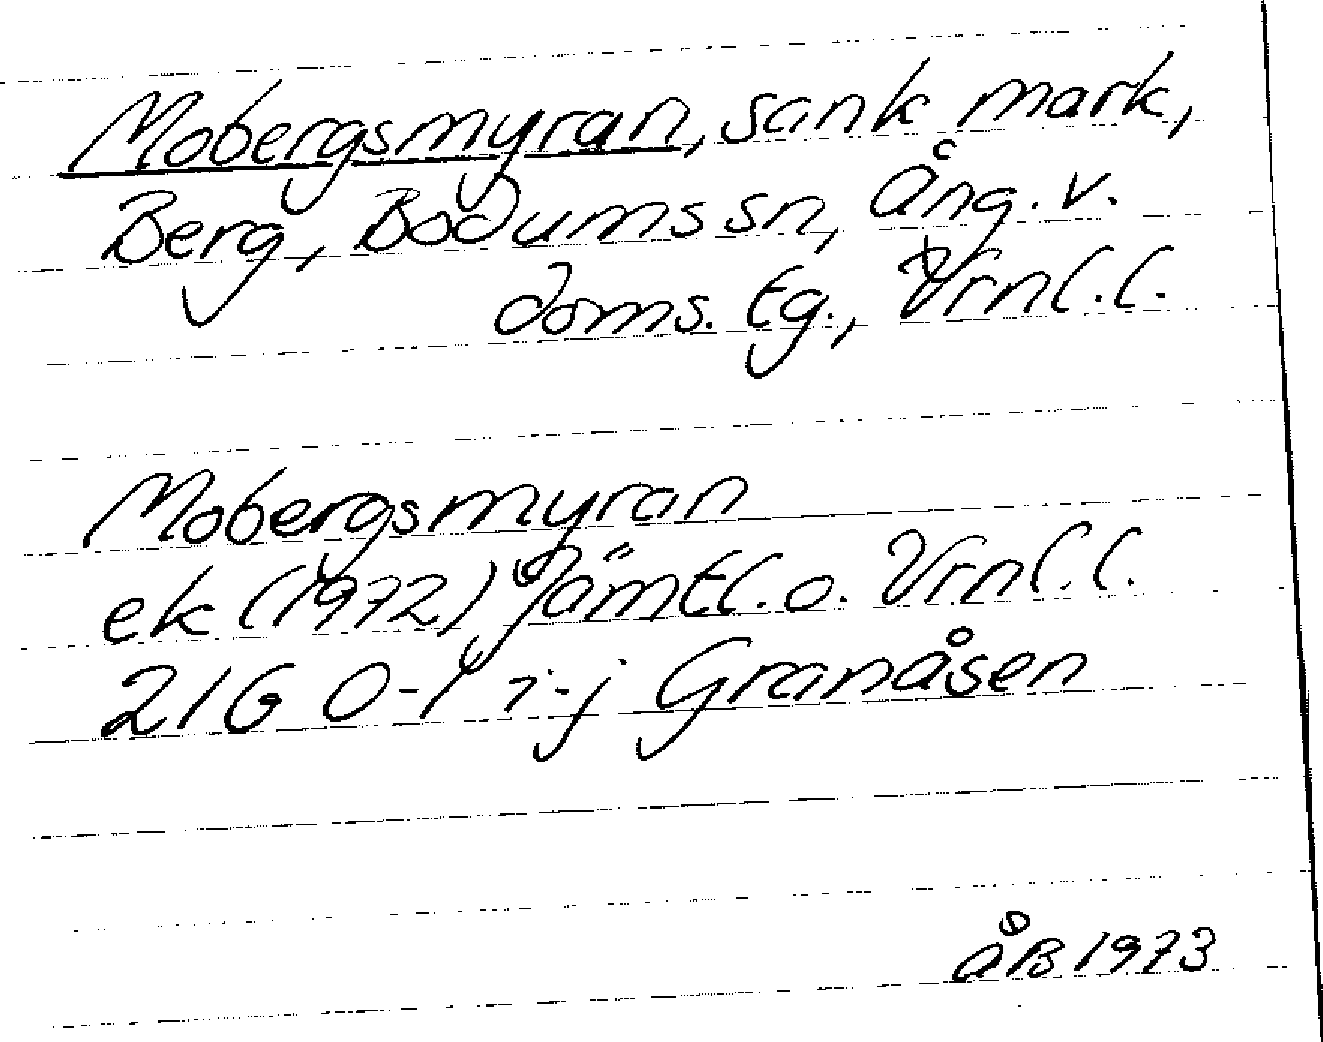 Mobergsmyran, sank mark,
Berg, Bodums sn, Ång. v.
doms. tg., Vrnl. l.
Mobergsmyran
ek (1972) Jämtl. o. Vrnl. l.
21G 0-1 i-j Granåsen
ÅB 1973